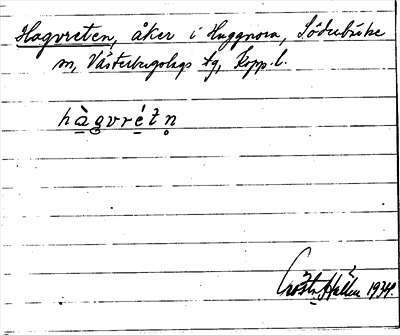 Hagvreten, åker i Huggnora, Söderbärke
sn, Västerbergslags tg, Kopp. l.
hàgvrétn̥
Gösta Hallen 1934.